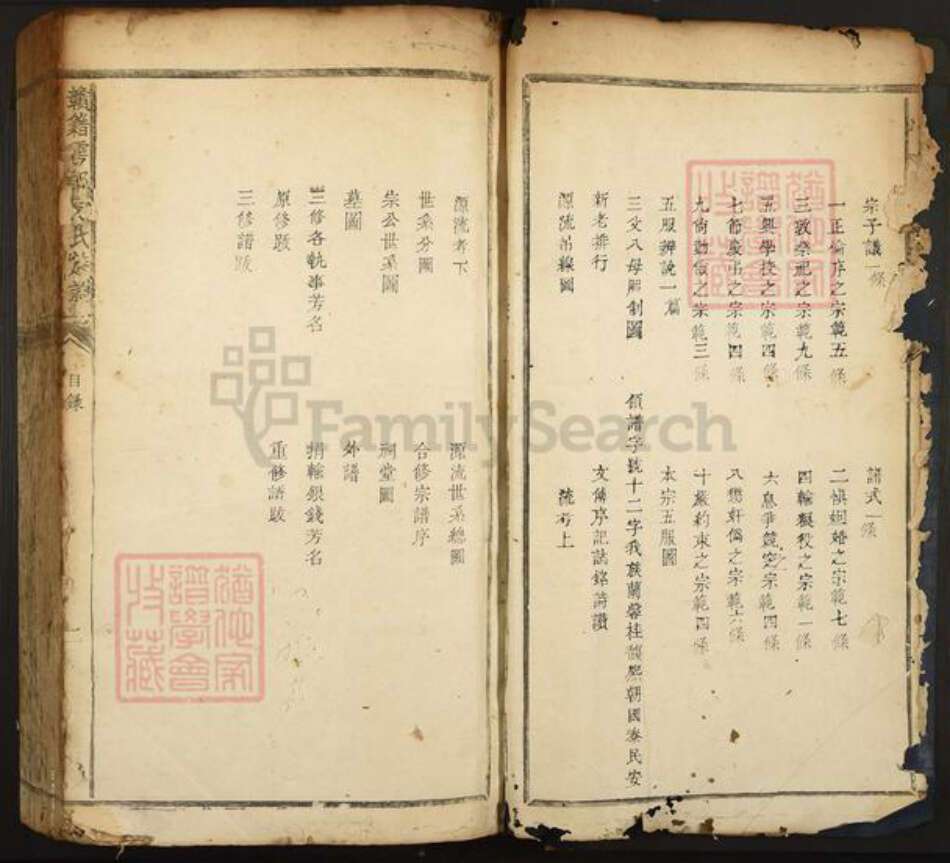 宗子議一條
譜式一條
一正倫序之宗範五條
二慎婣婚之宗範七條
三敦祭祀之宗範九條
四輸糧役之宗範一條
五興學校之宗範四條
六息爭競之宗範四條
七節慶弔之宗範四條
八獎軒僑之宗範六條
九尚勤儉之宗範三條
十嚴約束之宗範四條
五服辨說一篇
本宗五服圖
三父八母服制圖
領譜字號十二字我族蘭馨桂馥熙朝國泰民安
新老排行
文傳序記誌銘詩讚
源流吊線圖
流考上
源流考下
源流世系總圖
世系分圖
合修宗譜序
宗公世系圖
祠堂圖
墓圖
外譜
三修各執事芳名
捐輸銀錢芳名
原修跋
重修譜跋
三修譜跋
贛籍雩
氏
目錄
猶他家譜學會收藏
猶他家譜學會收藏
FamilySearch